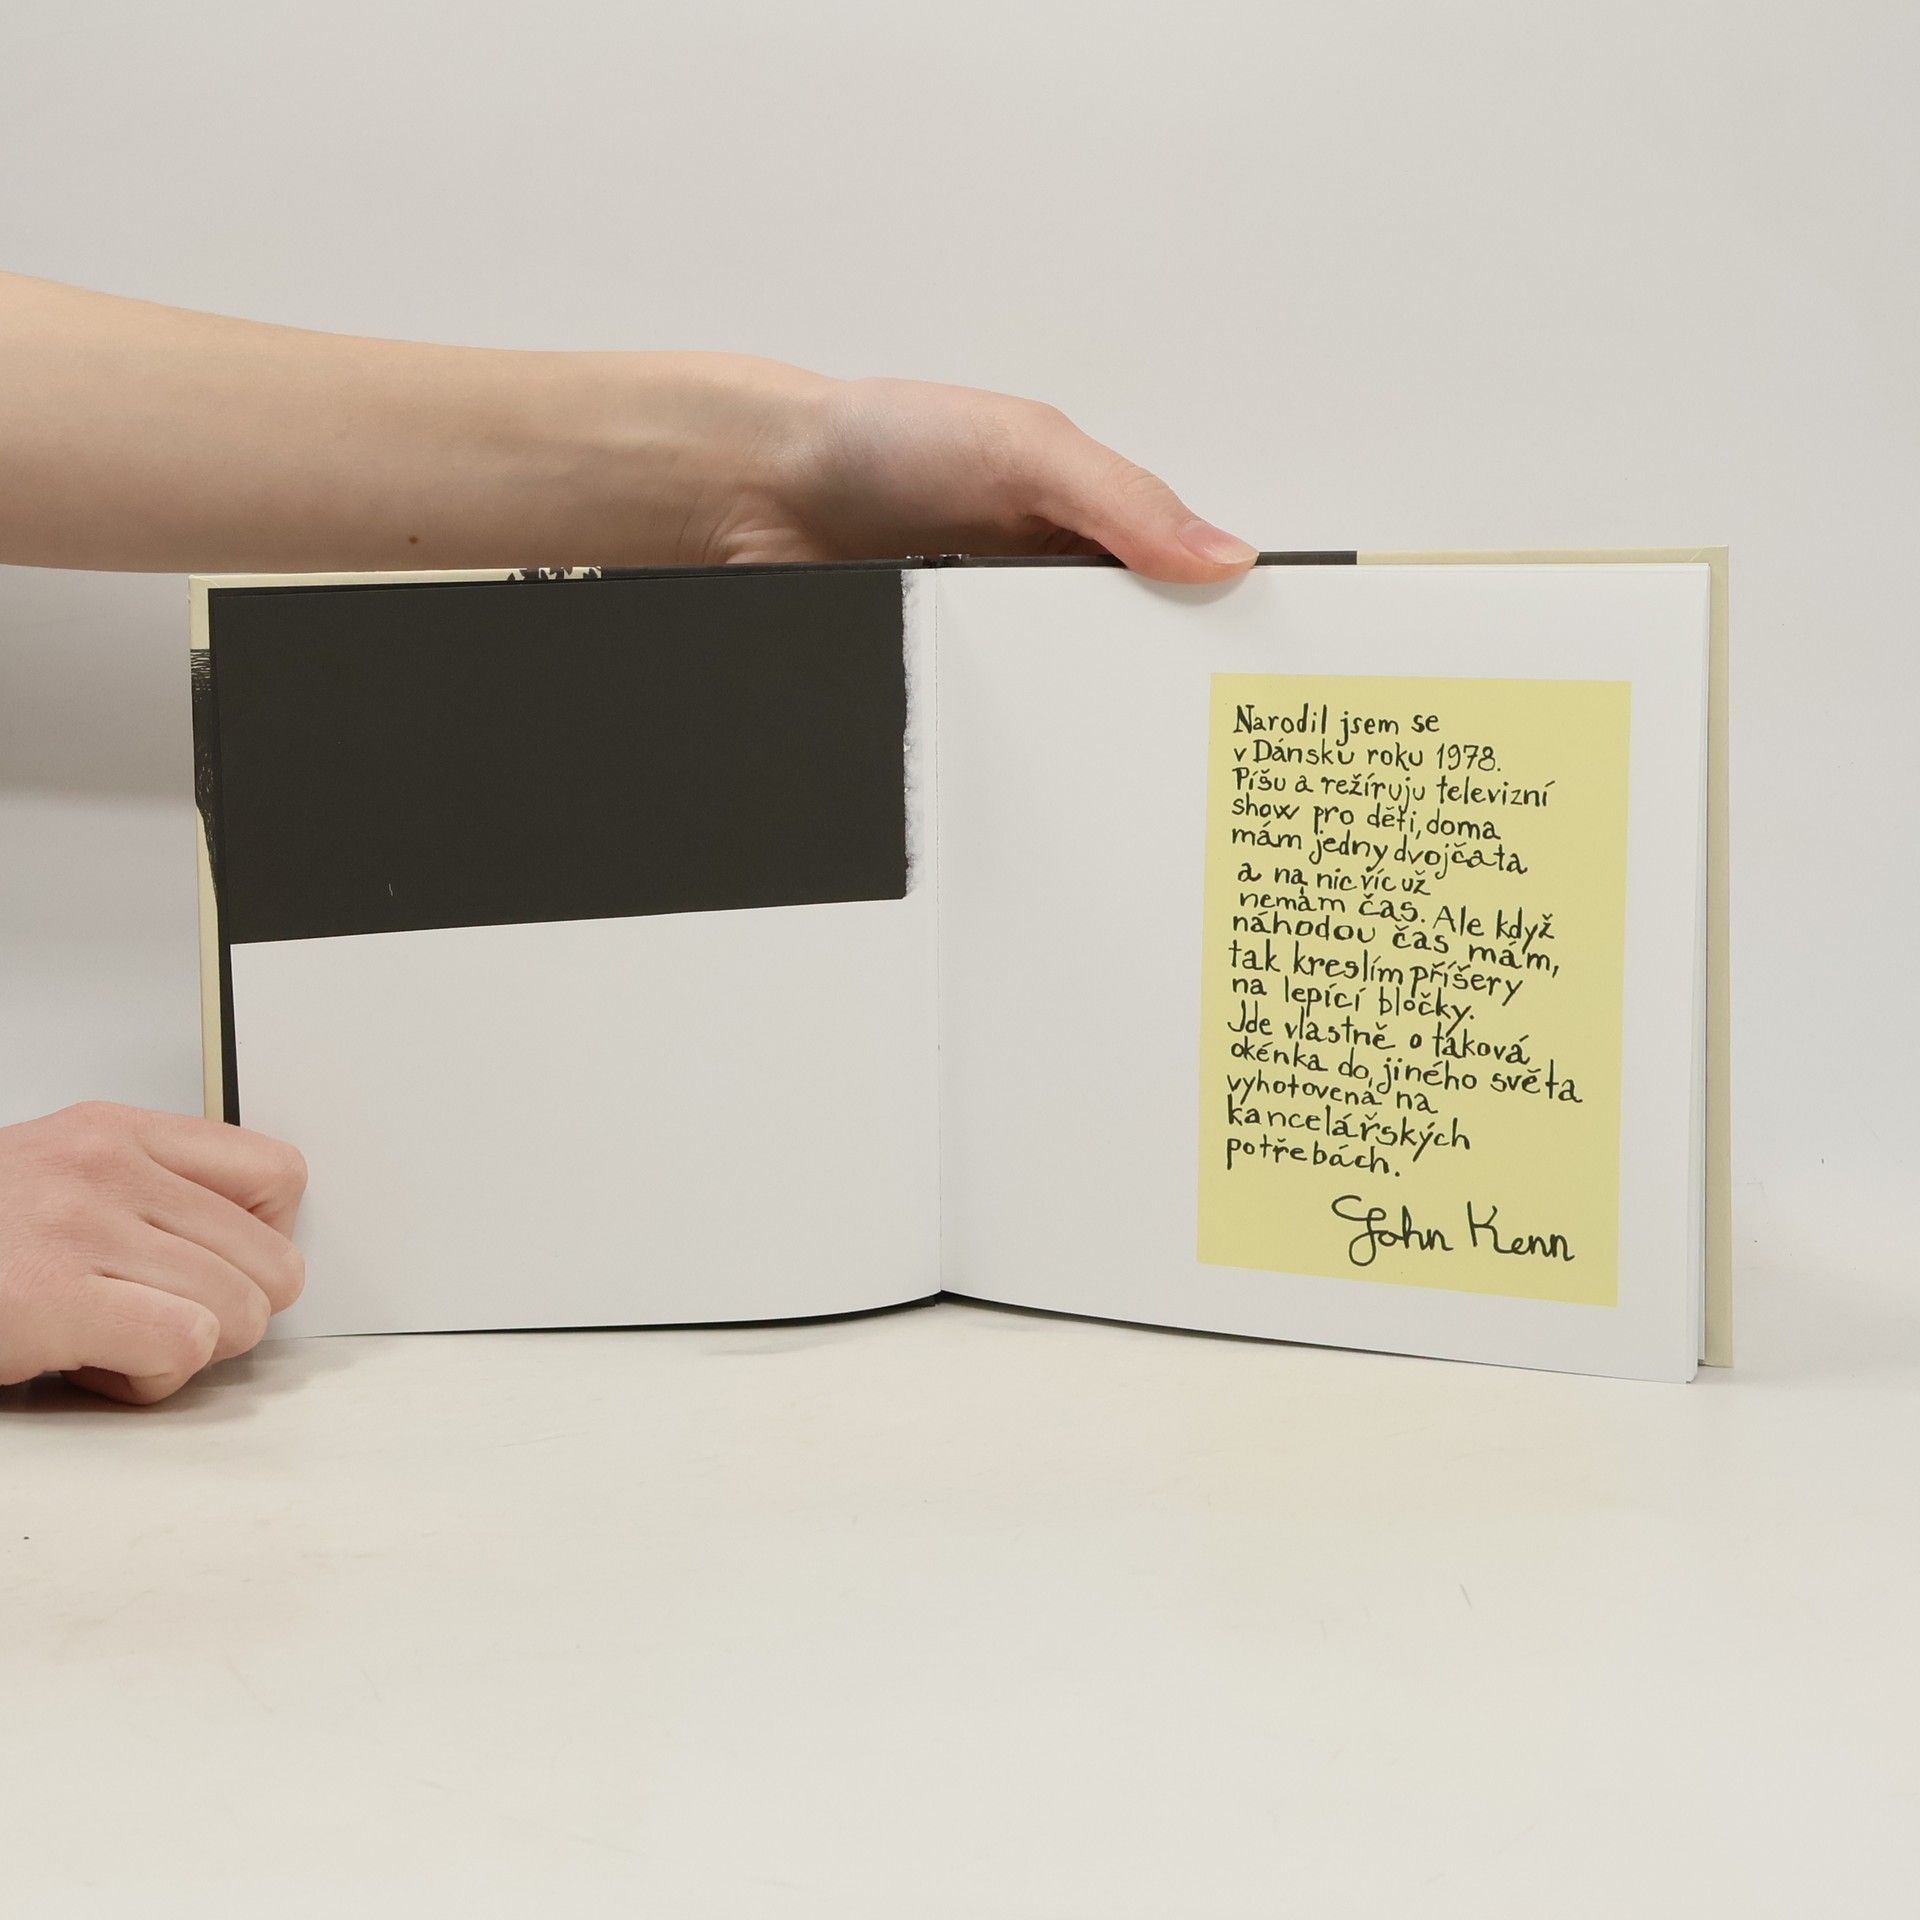 Narodil jsem se
v Dánsku roku 1978.
Píšu a režíruju televizní
show pro děti, doma
mám jedny dvojčata
a na nic víc už
nemám čas. Ale když
náhodou čas mám,
tak kreslím příšery
na lepící bločky.
Jde vlastně o taková
okénka do jiného světa
vyhotovená na
kancelářských
potřebách.
John Kenn